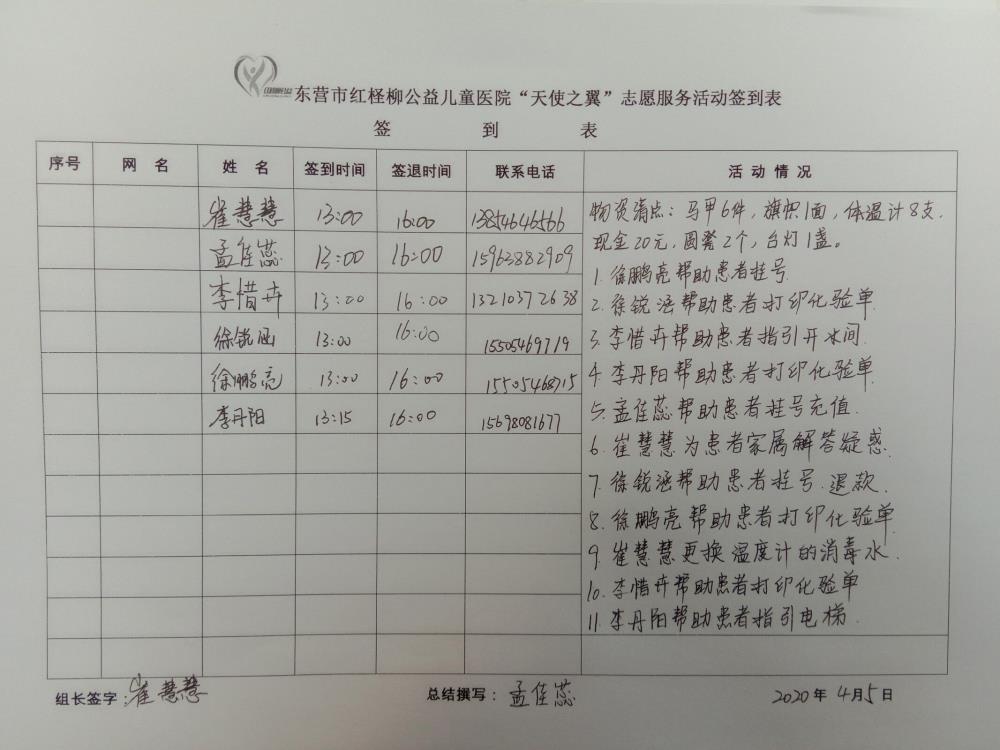 东营市红柽柳公益儿童医院“天使之翼”志愿服务活动签到表
签 到 表
序号 网 名 姓 名 签到时间 签退时间 联系电话 活 动 情 况
崔慧慧 13:00 16:00 13854646566
孟佳蕊 13:00 16:00 15963882909
李惜卉 13:00 16:00 13210372638
徐锐涵 13:00 16:00 15505469719
徐鹏亮 13:00 16:00 15505468715
李丹阳 13:15 16:00 15698081677
物资清点：马甲6件，旗帜1面，体温计8支，
现金20元，圆凳2个，台灯1盏。
1. 徐鹏亮帮助患者挂号
2. 徐锐涵帮助患者打印化验单
3. 李惜卉帮助患者指引开水间
4. 李丹阳帮助患者打印化验单
5. 孟佳蕊帮助患者挂号充值
6. 崔慧慧为患者家属解答疑惑
7. 徐锐涵帮助患者挂号.退款.
8. 徐鹏亮帮助患者打印化验单
9. 崔慧慧更换温度计的消毒水.
10. 李惜卉帮助患者打印化验单
11. 李丹阳帮助患者指引电梯
组长签字：崔慧慧 总结撰写：孟佳蕊 2020年4月5日